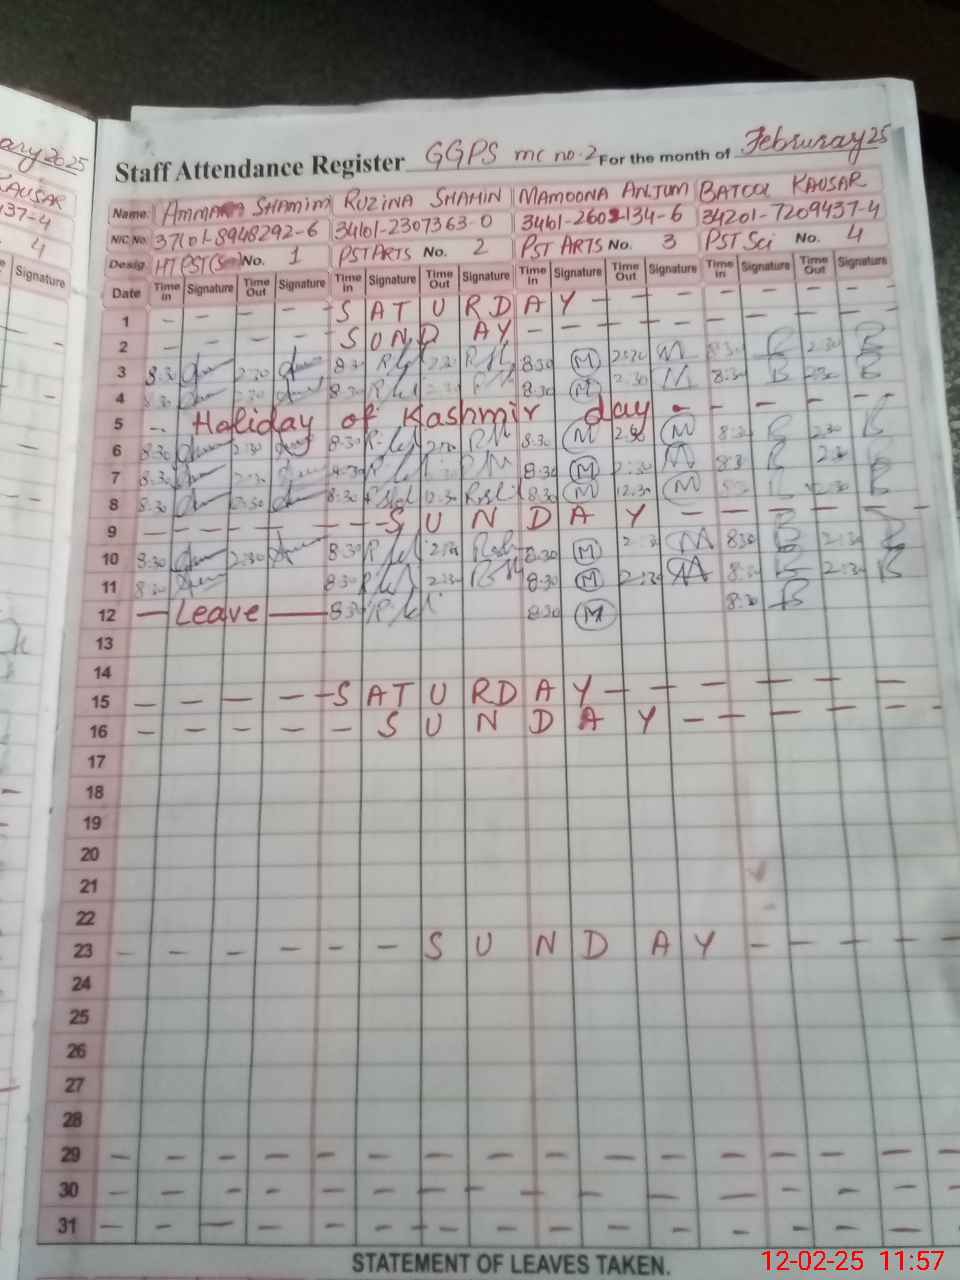 ary 2025
KAUSAR
37-4
4
Signature
Staff Attendance Register GGPS mc no.2 For the month of Februray 25
Name: AMMARA SHAMIM RUZINA SHAHIN MAMOONA ANJUM BATOOL KAUSAR
NIC No. 37101-8948292-6 34101-2307363-0 3461-2602134-6 34201-7209437-4
Desig. HT PST No. 1 PST ARTS No. 2 PST ARTS No. 3 PST Sci No. 4
Date Time In Signature Time Out Signature Time In Signature Time Out Signature Time In Signature Time Out Signature Time In Signature Time Out Signature
1 - - - - - S A T U R D A Y - - - - - - -
2 - - - - - S U N D A Y - - - - - - - -
3 8:30 2:30 8:30 2:30 8:30 M 2:30 M 8:30 B 2:30 B
4 8:30 2:30 8:30 2:30 8:30 M 2:30 M 8:30 B 2:30 B
5 - Holiday of Kashmir day - - - - -
6 8:30 2:30 8:30 2:30 8:30 M 2:30 M 8:30 B 2:30 B
7 8:30 2:30 8:30 M 2:30 M 8:30 B 2:30 B
8 8:30 8:30 12:30 8:30 M 12:30 M B B
9 - - - - - - - S U N D A Y - - - - - -
10 8:30 2:30 8:30 2:30 8:30 M 2:30 M 8:30 B 2:30 B
11 8:30 8:30 2:30 8:30 M 2:30 M 8:30 B 2:30 B
12 - Leave - 8:30 8:30 M 8:30 B
13
14
15 - - - - - S A T U R D A Y - - - - - - -
16 - - - - - S U N D A Y - - - - - -
17
18
19
20
21
22
23 - - - - - - S U N D A Y - - - - -
24
25
26
27
28
29 - - - - - - - - - - - - - - - -
30 - - - - - - - - - - - - - - - -
31 - - - - - - - - - - - - - - - -
STATEMENT OF LEAVES TAKEN.
12-02-25 11:57